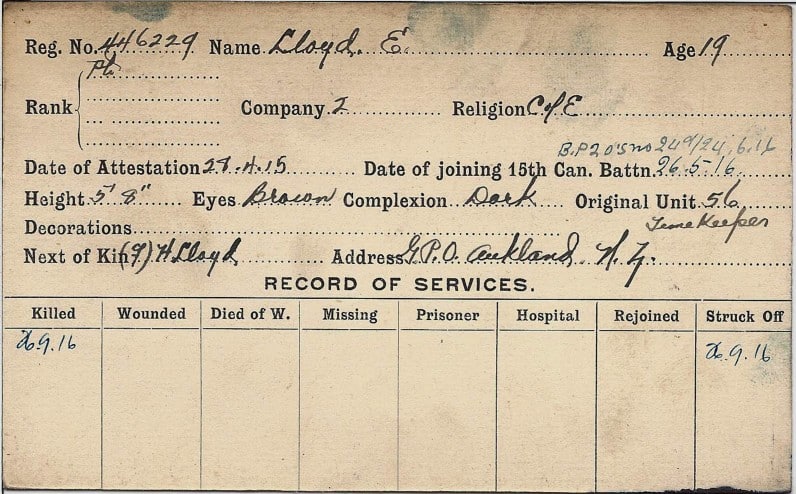 Reg. No. 446229 Name Lloyd. E. Age 19
Rank Pte
Company 2 Religion C of E
B.P20's no 24 9/24.6.16
Date of Attestation 27.4.15 Date of joining 15th Can. Battn. 26.5.16
Height 5' 8" Eyes Brown Complexion Dark Original Unit 56
Decorations Time Keeper
Next of Kin (F) H. Lloyd Address G.P.O. Aukland, N. Z.
RECORD OF SERVICES.
Killed Wounded Died of W. Missing Prisoner Hospital Rejoined Struck Off
26.9.16 26.9.16